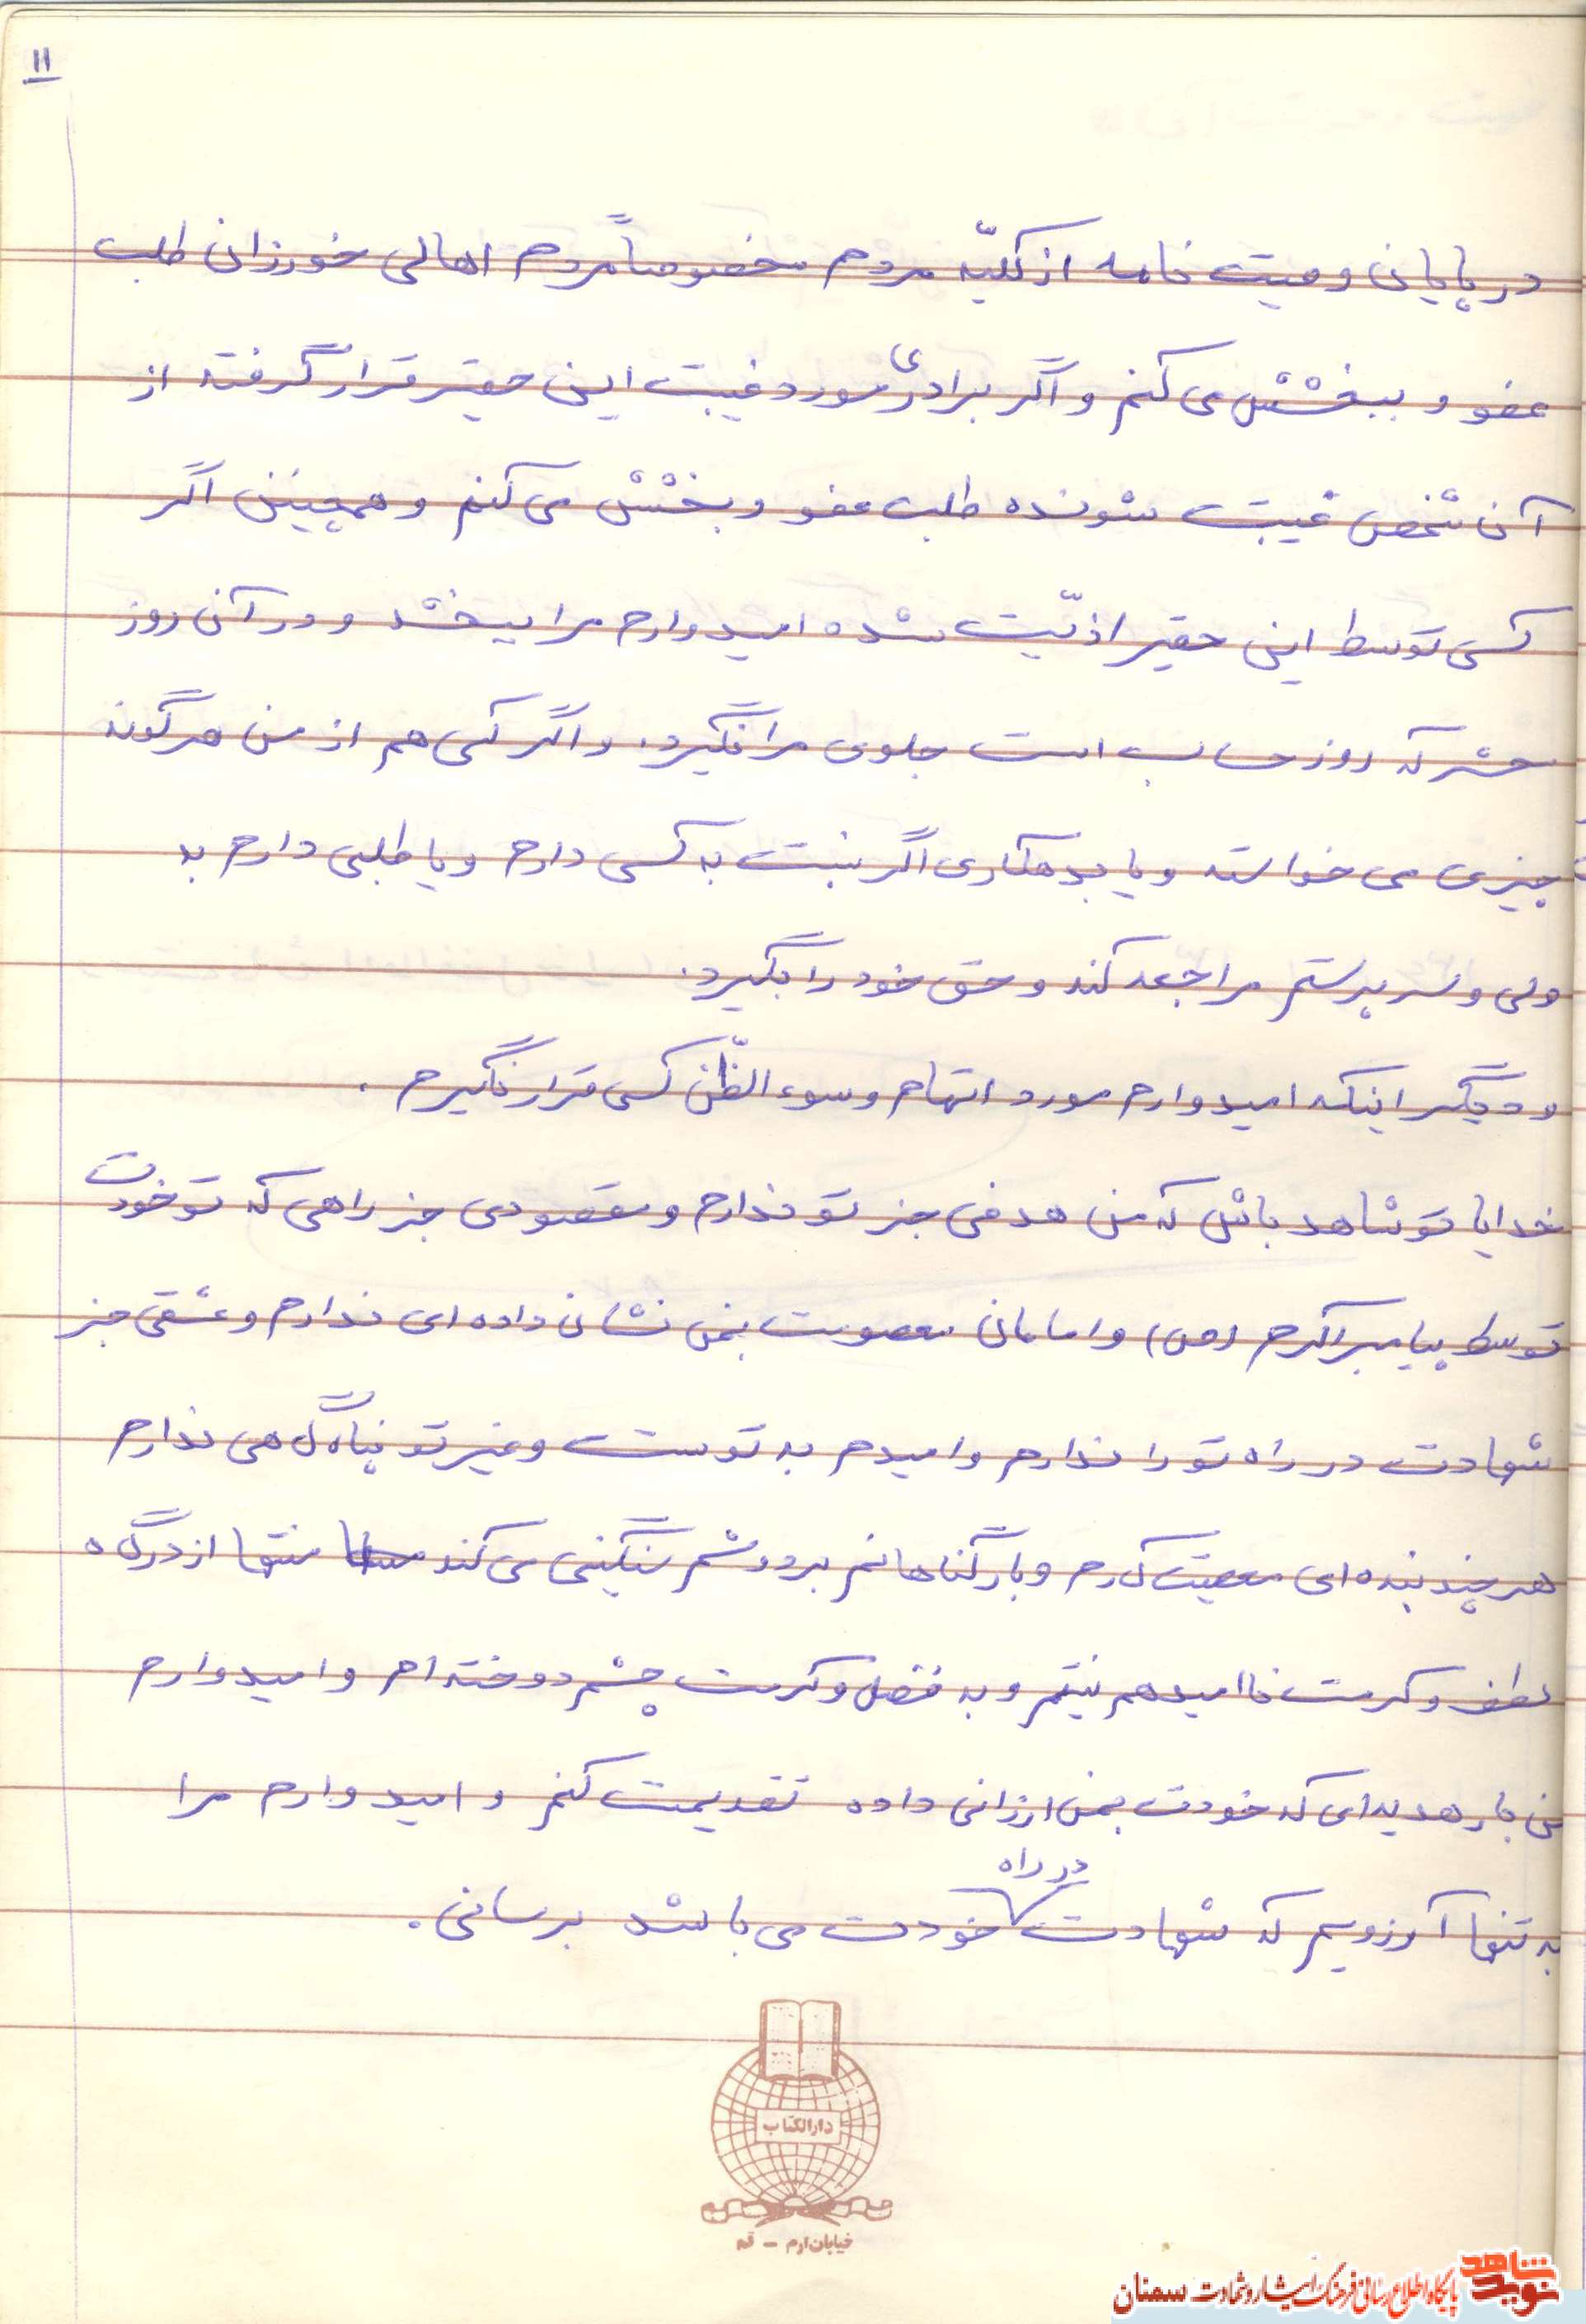 ۱۱
در پایان وصیت نامه از کلیّه مردم مخصوصاً مردم اهالی خورزان طلب
عفو و ببخشش می کنم و اگر برادری مورد غیبت این حقیر قرار گرفته از
آن شخص غیبت شونده طلب عفو و بخشش می کنم و همچنین اگر
کسی توسط این حقیر اذیّت شده امیدوارم مرا ببخشد و در آن روز
حشر که روز حساب است جلوی مرا نگیرد. و اگر کسی هم از من هرگونه
چیزی می خواسته و یا بدهکاری اگر نسبت به کسی دارم و یا طلبی دارم به
ولی و سرپرستم مراجعه کند و حق خود را بگیرد.
و دیگر اینکه امیدوارم مورد اتهام و سوء الظّن کسی قرار نگیرم .
خدایا تو شاهد باش که من هدفی جز تو ندارم و مقصودی جز راهی که تو خودت
توسط پیامبر اکرم (ص) و امامان معصومت بمن نشان داده ای ندارم و عشقی جز
شهادت در راه تو را ندارم و امیدم به توست و غیر تو پناهگاهی ندارم
هر چند بنده ای معصیت کارم و بار گناهانم بر دوشم سنگینی می کند منتها از درگاه
لطف و کرمت ناامید هم نیستم و به فضل و کرمت چشم دوخته ام و امیدوارم
هدیه ای که خودت بمن ارزانی داده تقدیمت کنم و امیدوارم مرا
به تنها آرزویم که شهادت در راه خودت می باشد برسانی .
دارالکتاب
خیابان ارم - قم
نوید شاهد
پایگاه اطلاع رسانی فرهنگ ایثار و شهادت سمنان